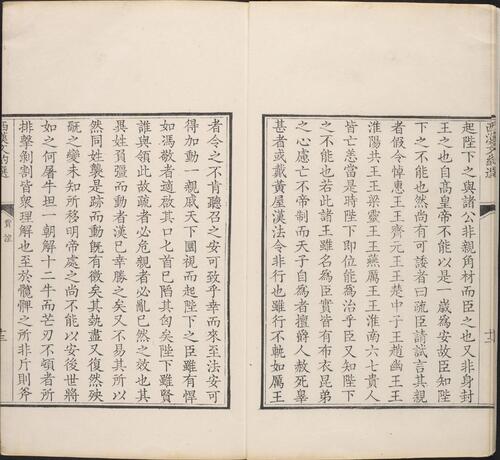 西漢文約選
起陛下之與諸公非親角材而臣之也又非身封
王之也自高皇帝不能以是一歲為安故臣知陛
下之不能也然尚有可諉者曰疏臣請試言其親
者假令悼惠王王齊元王王楚中子王趙幽王王
淮陽共王王梁靈王王燕厲王王淮南六七貴人
皆亡恙當是時陛下即位能為治乎臣又知陛下
之不能也若此諸王雖名為臣實皆有布衣昆弟
之心慮亡不帝制而天子自為者擅爵人赦死辠
甚者或戴黃屋漢法令非行也雖行不軌如厲王
者令之不肯聽召之安可致乎幸而來至法安可
得加動一親戚天下圜視而起陛下之臣雖有悍
如馮敬者適啟其口匕首已陷其匈矣陛下雖賢
誰與領此故疏者必危親者必亂已然之效也其
異姓負彊而動者漢已幸勝之矣又不易其所以
然同姓襲是跡而動既有徵矣其埶盡又復然殃
旤之變未知所移明帝處之尚不能以安後世將
如之何屠牛坦一朝解十二牛而芒刃不頓者所
排擊剝割皆眾理解也至於髖髀之所非斤則斧
西漢文約選
賈誼
十三